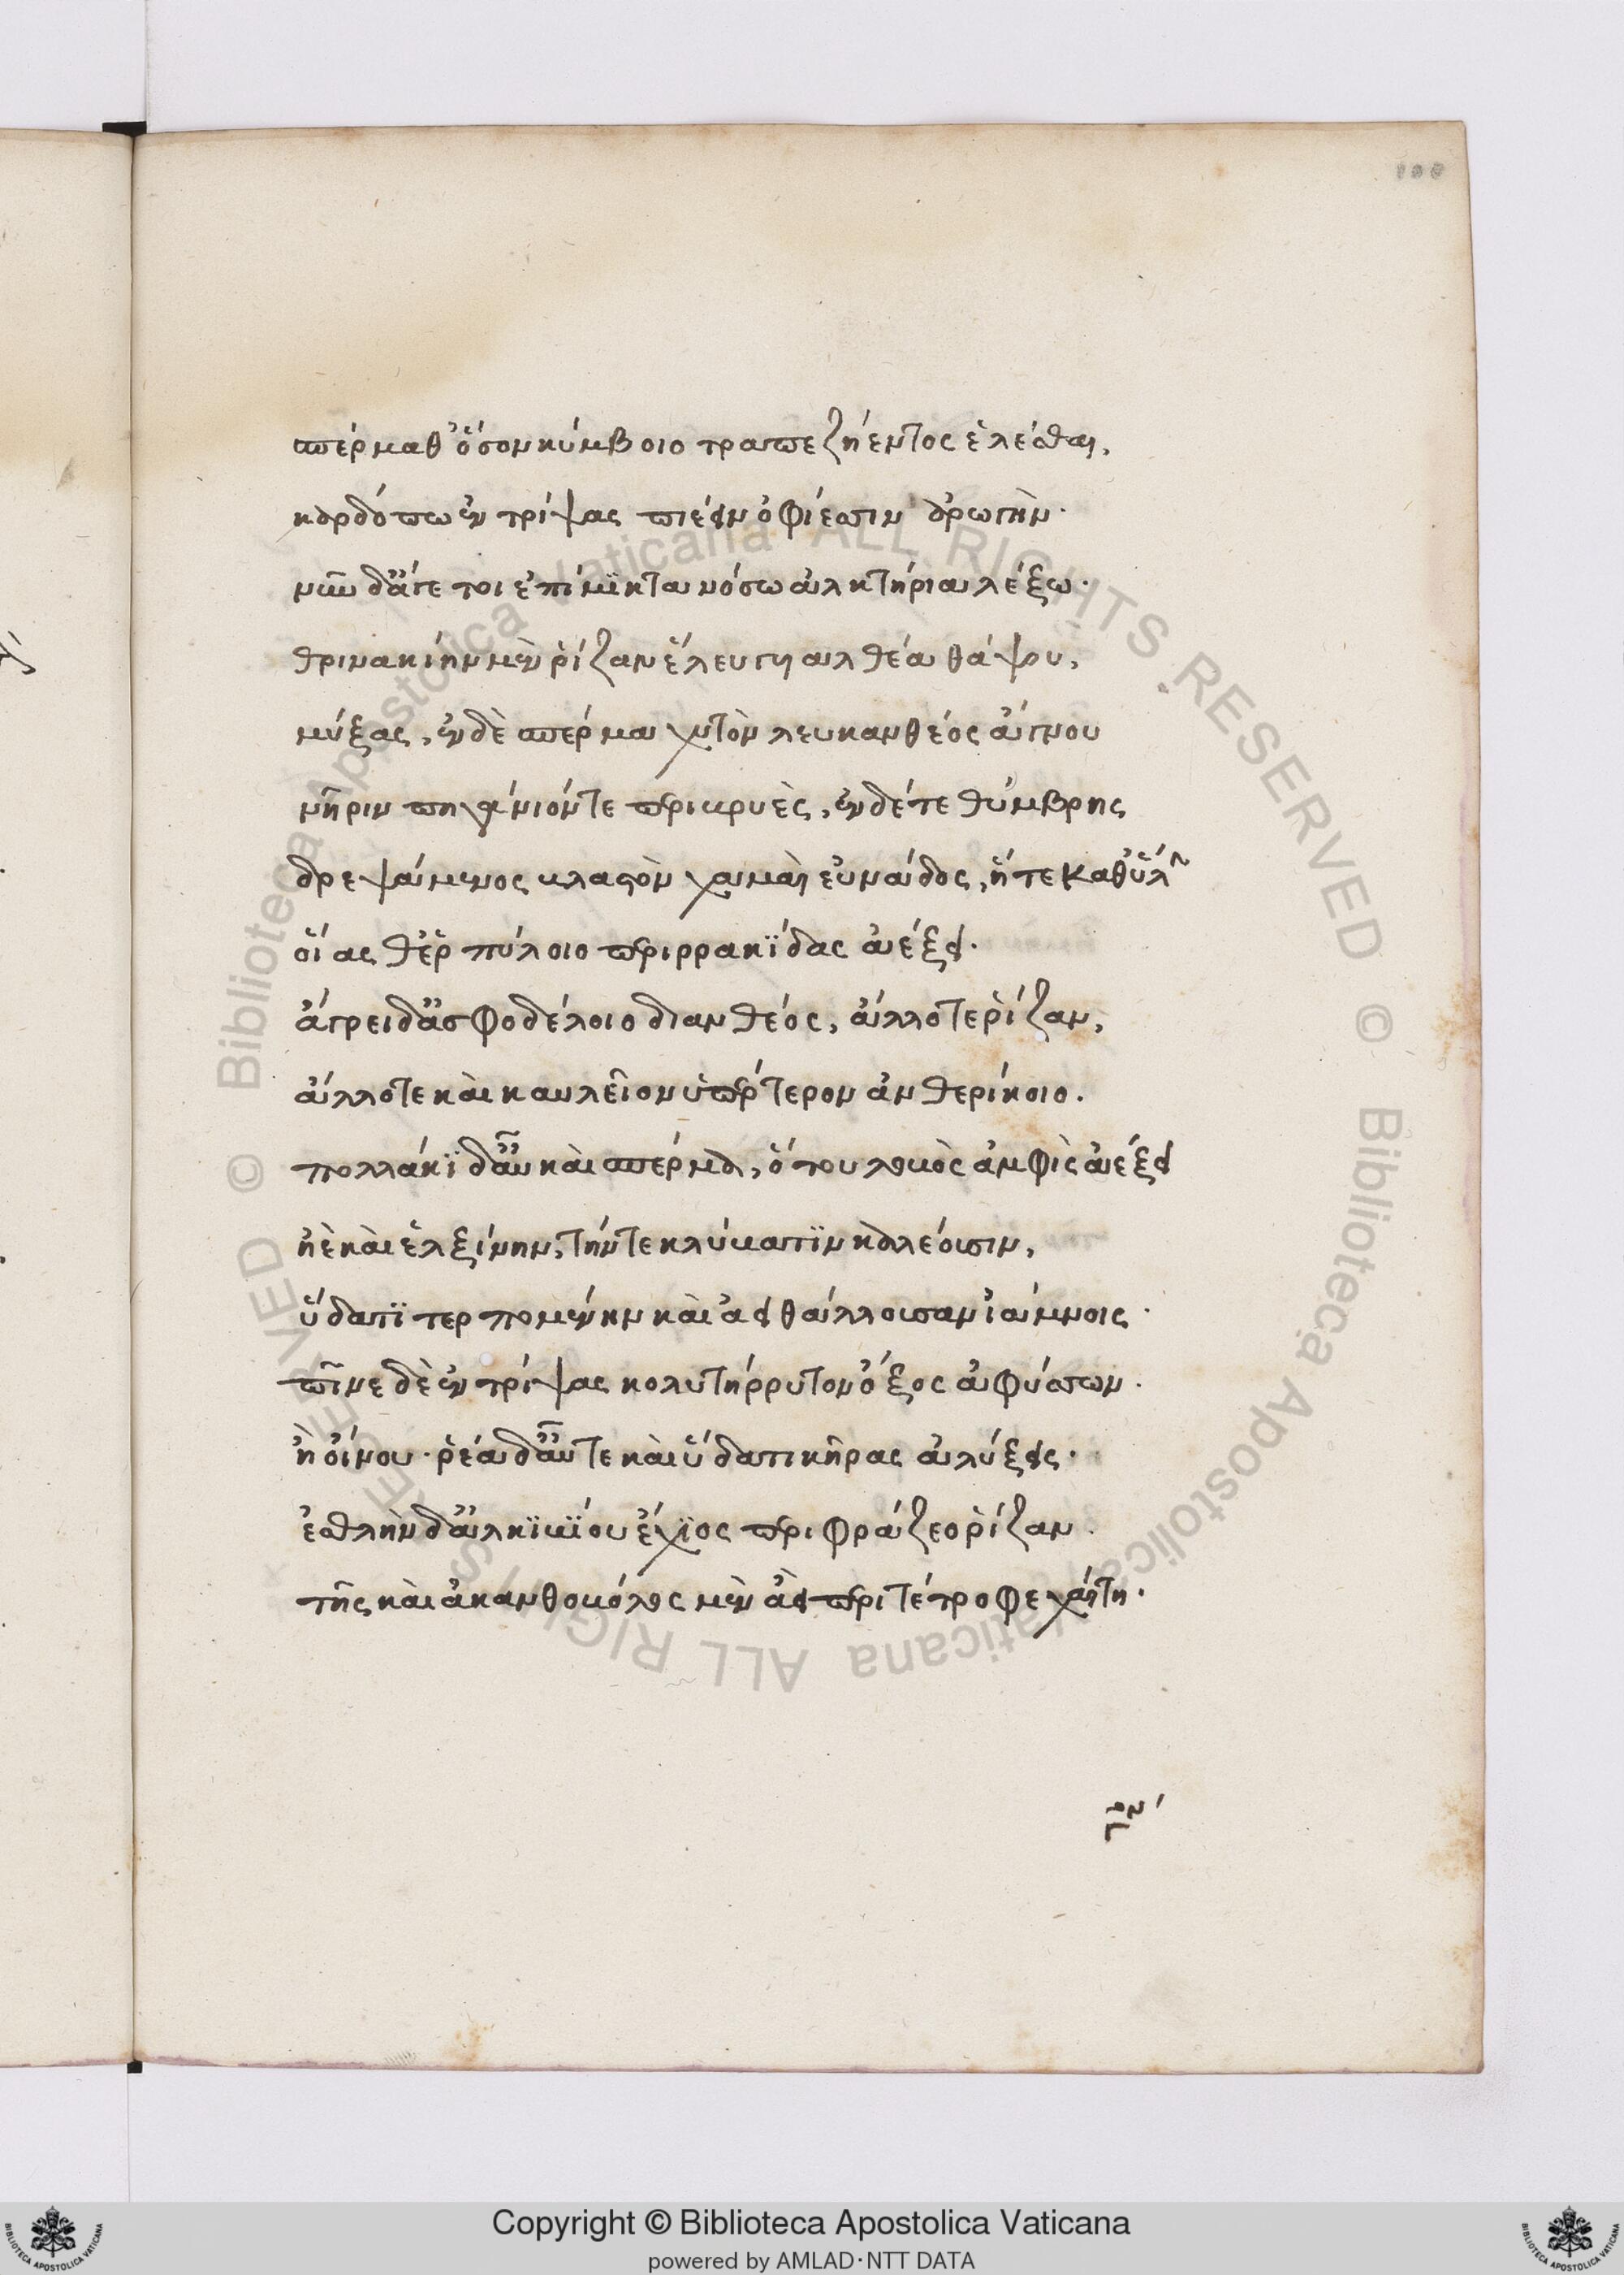 σπέρμαθ' ὅσον κύμβοιο τραπεζήεντος ἑλέσθαι,
καρδόπω ἐν τρίψας πιέειν ὀφίεσσιν ἀρωγὴν.
νῦν δ' ἄγε τοι ἐπίμϊκτα νόσω ἀλκτήρια λέξω.
θρινακίην μὲν ῥίζαν ἕλευ γῃ ἀλθέα θάψου,
μύξας, ἐν δὲ σπέρμα χυτὸν λευκανθέος ἁγνου
νῆριν πηγάνιόν τε περικρυὲς, ἐν δέ τε θύμβρης
δρεψάμενος κλαστὸν χαμαὶ εὐνάδος, ἥ τε καθ' ὕλην
οἵας θ' ἑρπύλοιο περιρρακϊδας ἀέξει.
ἄγρει δ' ἀσφοδέλοιο διανθέος, ἄλλοτε ῥίζαν,
ἄλλοτε καὶ καυλεῖον ὑπέρτερον ἀνθερίκοιο.
πολλάκϊ δ' αὖ καὶ σπέρμα, ὅ τοι λοβὸς ἀμφὶς ἀέξει
ἠὲ καὶ ἑλξίνην, τήν τε κλύβατϊν καλέουσιν,
ὕδατϊ τερπομένην καὶ ἀεὶ θάλλουσαν ἰάμνοις.
πῖνε δὲ ἐν τρίψας κοτυλήρρυτον ὄξος ἀφύσσων.
ἢ οἴνου. ῥέα δ' αὖτε καὶ ὕδατι κῆρας ἀλύξεις.
ἐσθλὴν δ' ἀλκϊβϊου ἔχϊος περιφράζεο ῥίζαν.
τῆς καὶ ἀκανθοβόλος μὲν ἀεὶ περιτέτροφε χαίτη.
Copyright © Biblioteca Apostolica Vaticana
powered by AMLAD·NTT DATA